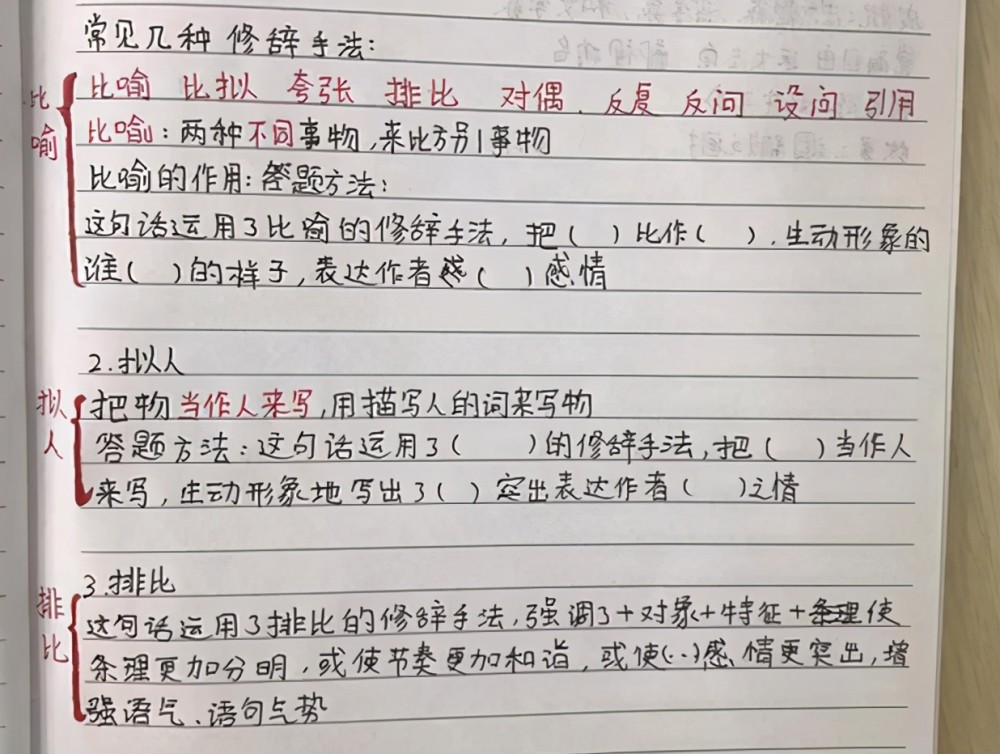 常见几种修辞手法:
比喻 比拟 夸张 排比 对偶、反复 反问 设问 引用
比喻
比喻:两种不同事物,来比方另1事物
比喻的作用:答题方法:
这句话运用了比喻的修辞手法,把( )比作( ),生动形象的
谁( )的样子,表达作者 ( )感情
2.拟人
拟人
把物当作人来写,用描写人的词来写物
答题方法:这句话运用了( )的修辞手法,把( )当作人
来写,生动形象地写出了( )突出表达作者( )之情
3.排比
排比
这句话运用了排比的修辞手法,强调了+对象+特征+条理使
条理更加分明,或使节奏更加和谐,或使(··)感情更突出,增
强语气、语句气势